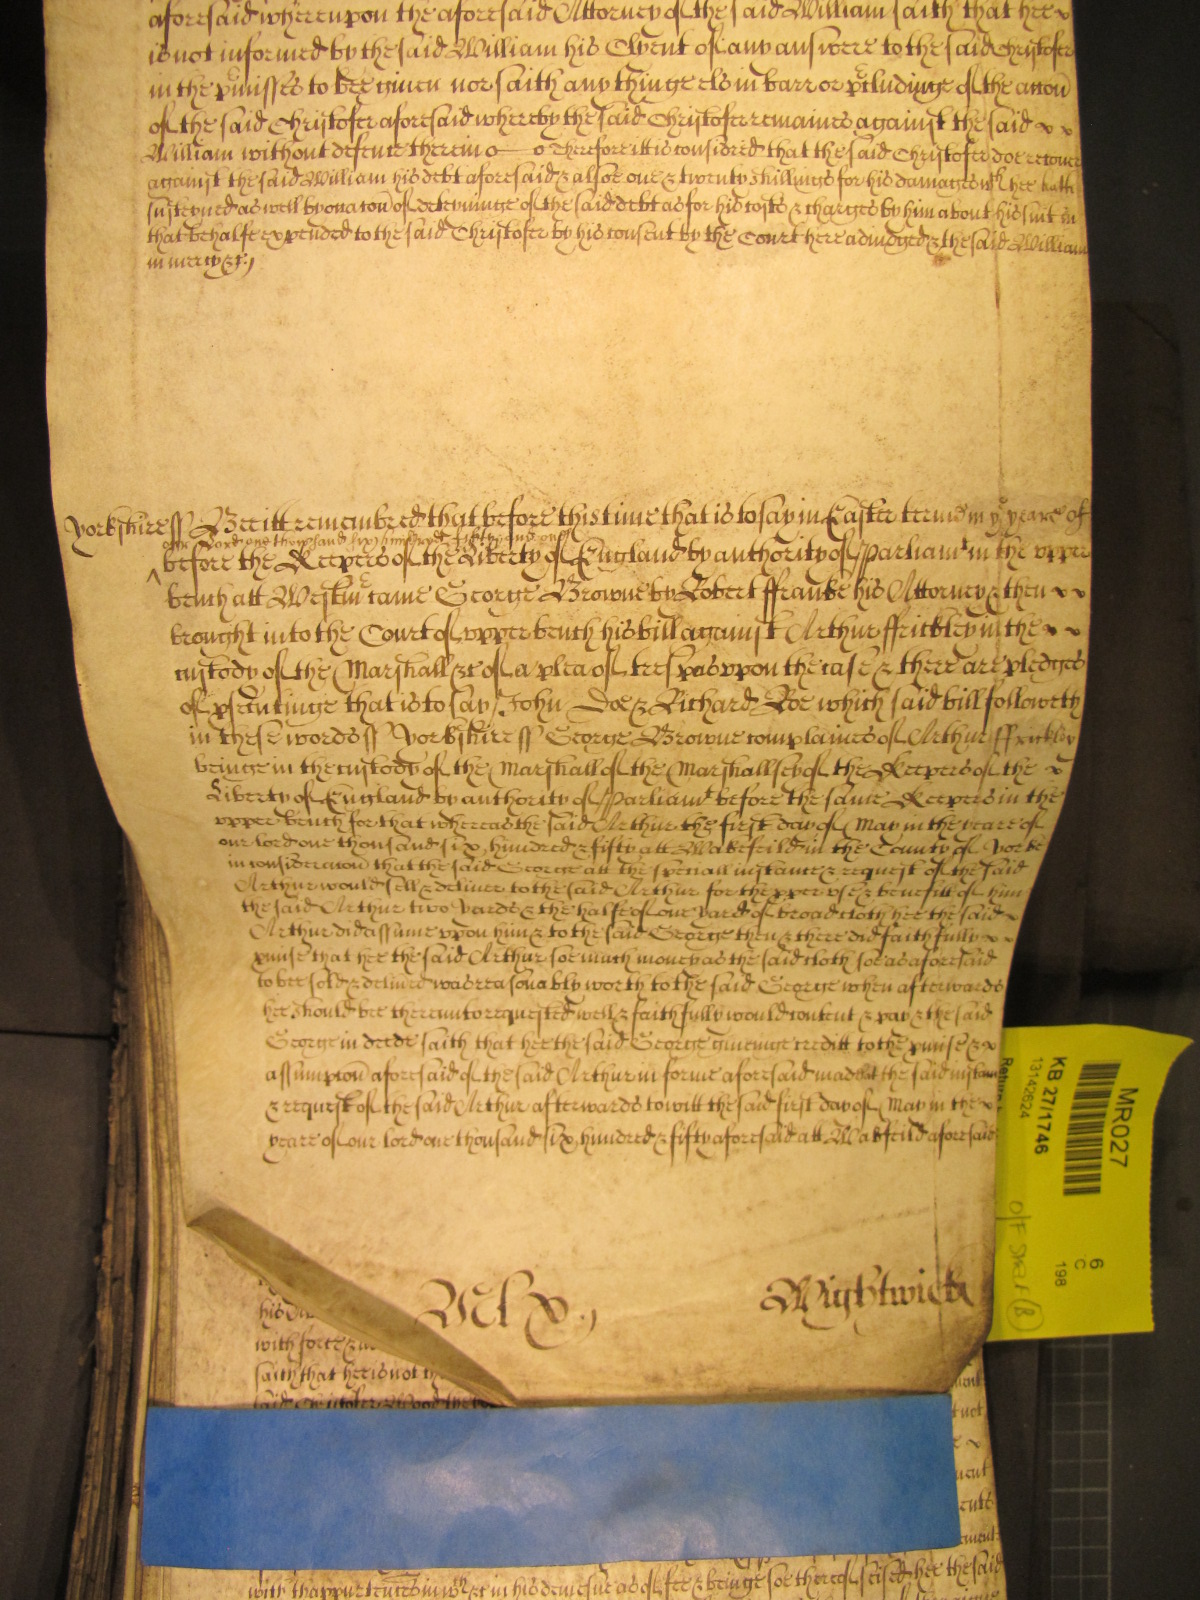 aforesaid whereupon the aforesaid Attorney of the said William saith that hee x
is not informed by the said William his Clyent of any answere to the said Christofer
in the p'misses to bee given nor saith any thinge els in barr or p'cludinge of the accon
of the said Christofer aforesaid whereby the said Christofer remaines against the said x x
William without defence therein o—o Therefore itt is considered that the said Christofer doe recover
against the said William his debt aforesaid & alsoe one & twenty shillings for his damages wch hee hath
susteyned as well by occacon of deteyninge of the said debt as for his costs & charges by him about his suit in
that behalfe expended to the said Christofer by his consent by the Court here adiudged & the said William
in mercy &c.
Yorkshire ss Bee itt remembred that before this time that is to say in Easter terme in ye yeare of
our Lord one thousand six hundred fifty and one
before the Keepers of the Liberty of England by authority of Parliamt in the upper
bench att Westm' came George Browne by Robert ffranke his Attorney & then x x
brought into the Court of upper bench his bill against Arthur ffrickley in the x x
custody of the Marshall &c of a plea of trespas upon the case & there are pledges
of p'secutinge that is to say John Doe & Richard Roe which said bill followeth
in these words ss Yorkshire ss George Browne complaines of Arthur ffrickley
beinge in the custody of the Marshall of the Marshallsey of the Keepers of the x
Liberty of England by authority of Parliamt before the same Keepers in the
upper bench for that whereas the said Arthur the first day of May in the yeare of
our lord one thousand six hundred & fifty att Wakefeild in the County of Yorke
in consideracon that the said George att the speciall instance & request of the said
Arthur would sell & deliver to the said Arthur for the proper use & benefitt of him
the said Arthur two yards & the halfe of one yard of broad cloth hee the said x
Arthur did assume upon him & to the said George then & there did faithfully x x
p'mise that hee the said Arthur soe much money as the said cloth soe as aforesaid
to bee sold & deliverd was reasonably worth to the said George when afterwards
hee should bee thereunto requested well & faithfully would content & pay & the said
George in deede saith that hee the said George giveinge creditt to the p'mise & x
assumpcon aforesaid of the said Arthur in forme aforesaid made att the said instance
& request of the said Arthur afterwards to witt the said first day of May in the x
yeare of our lord one thousand six hundred & fifty aforesaid att Wakfeild aforesaid
Wightwick
his
with force &
saith that hee is not th
said Christofer Wood the
with thappurtenncs in
in his demesne as of fee & beinge soe thereof seised hee the said
MR027
KB 27/1746
13142624
6
C
198